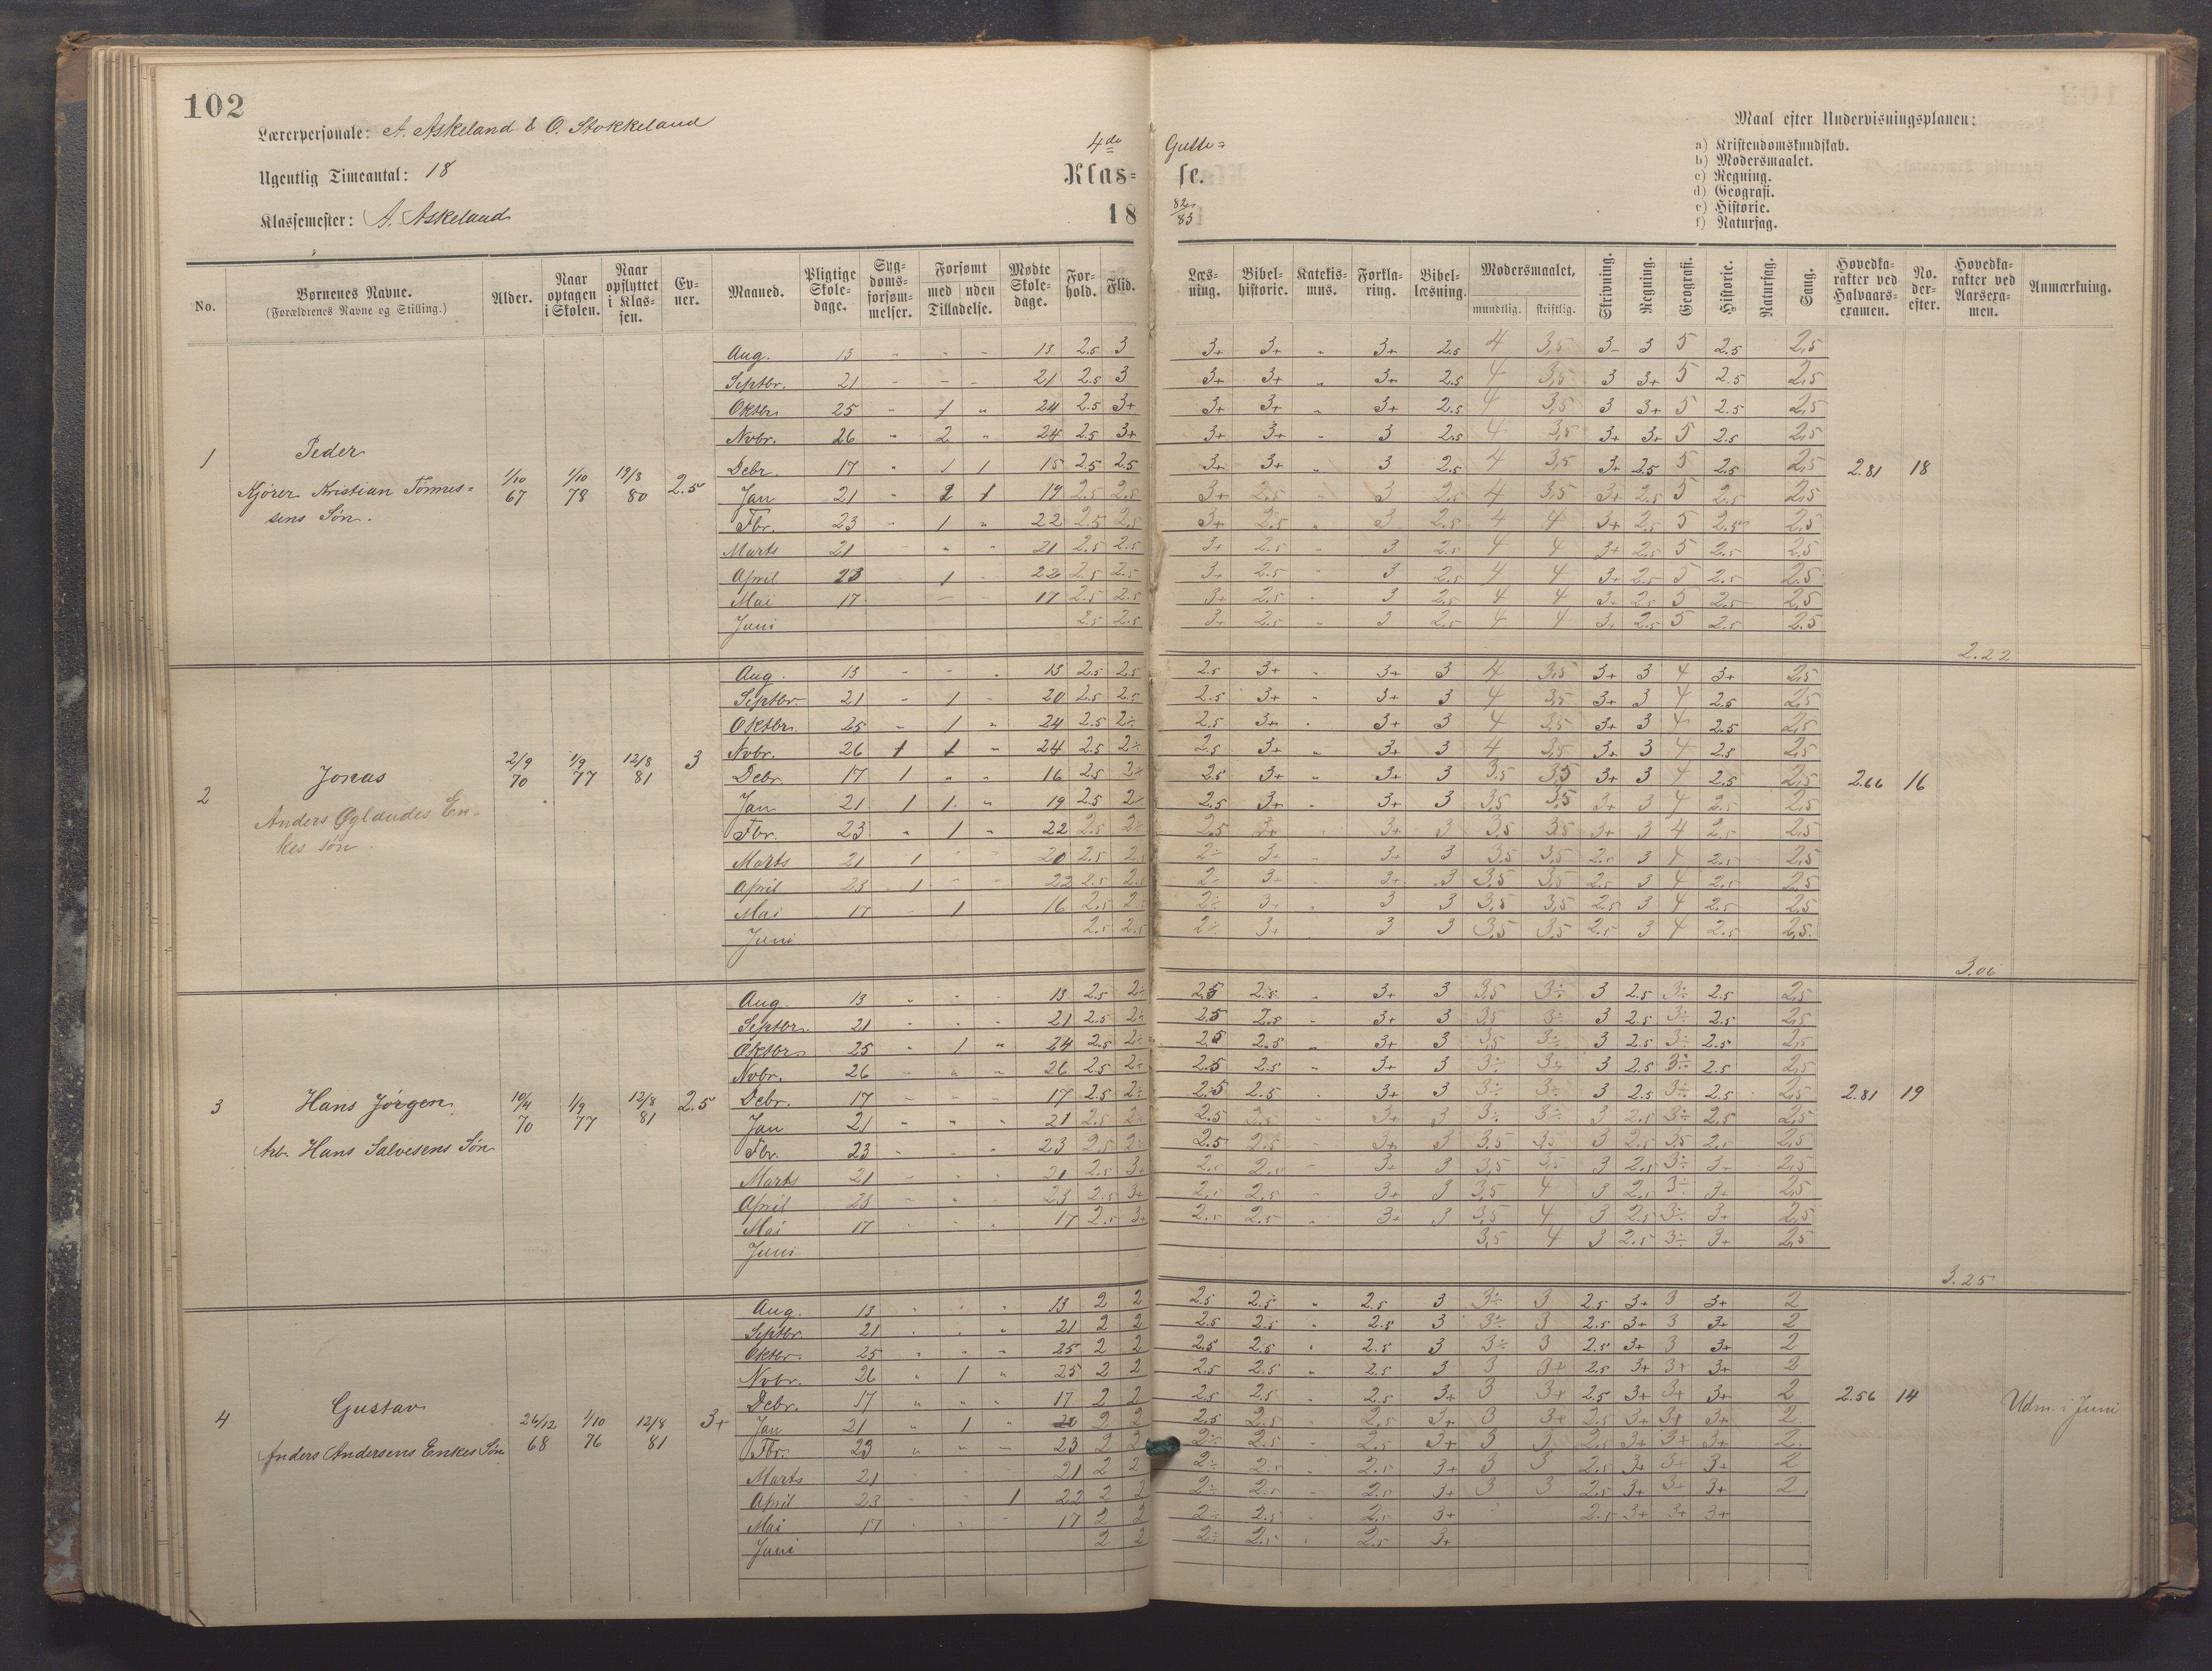 102
Lærerpersonale: A. Askeland & O. Stokkeland
Ugentlig Timeantal: 18
Klassemester: A. Askeland
4de Gutte=
Klas= se.
18 82/83
Maal efter Undervisningsplanen:
a) Kristendomskundskab.
b) Modersmaalet.
c) Regning.
d) Geografi.
e) Historie.
f) Naturfag.
No. Børnenes Navne. (Forældrenes Navne og Stilling.) Alder. Naar optagen i Skolen. Naar opflyttet i Klassen. Evner. Maaned. Pligtige Skoledage. Sygdomsforsømmelser. Forsømt med uden Tilladelse. Mødte Skoledage. Forhold. Flid. Læsning. Bibelhistorie. Katekismus. Forklaring. Bibellæsning. Modersmaalet, mundtlig. skriftlig. Skrivning. Regning. Geografi. Historie. Naturfag. Sang. Hovedkarakter ved Halvaarsexamen. No. derefter. Hovedkarakter ved Aarsexamen. Anmærkning.
1 Peder
Kjører Kristian Tønnes=
sens Søn.
1/10 67 1/10 78 19/8 80 2.5
Aug. 13 - - - 13 2.5 3 3+ 3+ " 3+ 2.5 4 3,5 3- 3 5 2.5 2,5
Septbr. 21 - - - 21 2.5 3 3+ 3+ " 3+ 2.5 4 3,5 3 3+ 5 2.5 2,5
Oktbr. 25 - 1 " 24 2.5 3+ 3+ 3+ " 3+ 2.5 4 3,5 3 3+ 5 2.5 2,5
Nvbr. 26 " 2 " 24 2.5 3+ 3+ 3+ " 3 2.5 4 3,5 3+ 3+ 5 2.5 2,5
Debr. 17 " 1 1 15 2.5 2.5 3+ 3+ " 3 2.5 4 3,5 3+ 2.5 5 2.5 2,5 2.81 18
Jan 21 - 2 1 19 2.5 2.5 3+ 2.5 " 3 2.5 4 3,5 3+ 2.5 5 2.5 2,5
Fbr. 23 " 1 " 22 2.5 2.5 3+ 2.5 " 3 2.5 4 4 3+ 2.5 5 2.5 2,5
Marts 21 - " - 21 2.5 2.5 3+ 2.5 - 3 2.5 4 4 3+ 2.5 5 2.5 2,5
April 23 - 1 - 22 2.5 2.5 3+ 2.5 3 2.5 4 4 3+ 2.5 5 2.5 2,5
Mai 17 - - 17 2.5 2.5 3+ 2.5 - 3 2.5 4 4 3+ 2.5 5 2.5 2,5
Juni 2.5 2.5 3+ 2.5 " 3 2.5 4 4 3+ 2.5 5 2.5 2.5
2.22
2 Jonas
Anders Øglændes En=
kes søn.
2/9 70 1/9 77 12/8 81 3
Aug. 13 - - . 13 2.5 2.5 2.5 3+ - 3+ 3 4 3,5 3+ 3 4 3+ 2,5
Septbr. 21 - 1 - 20 2.5 2.5 2.5 3+ - 3+ 3 4 3,5 3+ 3 4 2.5 2,5
Oktbr. 25 " 1 " 24 2.5 2÷ 2.5 3+ . 3+ 3 4 3,5 3+ 3 4 2.5 2,5
Nvbr. 26 1 1 " 24 2.5 2÷ 2.5 3+ " 3+ 3 4 3,5 3+ 3 4 2.5 2,5
Debr 17 1 " " 16 2.5 2÷ 2.5 3+ " 3+ 3 3,5 3,5 3+ 3 4 2.5 2,5 2.66 16
Jan 21 1 1 " 19 2.5 2÷ 2.5 3+ . 3+ 3 3,5 3,5 3+ 3 4 2.5 2,5
Fbr. 23 " 1 " 22 2.5 2÷ 2.5 3+ . 3+ 3 3,5 3,5 3+ 3 4 2.5 2,5
Marts 21 1 - - 20 2.5 2.5 2÷ 3+ 3+ 3 3,5 3,5 2.5 3 4 2.5 2,5
April 23 1 - - 22 2.5 2.5 2÷ 3+ . 3+ 3 3,5 3,5 2.5 3 4 2.5 2,5
Mai 17 - 1 16 2.5 2.5 2÷ 3+ . 3 3 3,5 3,5 2.5 3 4 2.5 2,5
Juni 2.5 2.5 2÷ 3+ 3 3 3,5 3,5 2.5 3 4 2.5 2,5
3.06
3 Hans Jørgen
Arb. Hans Salvesens Søn
10/4 70 1/9 77 12/8 81 2.5
Aug. 13 " - - 13 2.5 2÷ 2.5 2.5 " 3+ 3 3,5 3÷ 3 2.5 3÷ 2.5 2,5
Septbr. 21 " - - 21 2.5 2÷ 2.5 2.5 " 3+ 3 3,5 3÷ 3 2.5 3÷ 2.5 2,5
Oktbr. 25 " 1 " 24 2.5 2÷ 2.5 2.5 " 3+ 3 3,5 3÷ 3 2.5 3÷ 2.5 2,5
Nvbr. 26 " " " 26 2.5 2÷ 2.5 2.5 " 3+ 3 3÷ 3÷ 3 2.5 3÷ 2.5 2,5
Debr. 17 - - - 17 2.5 2÷ 2.5 2.5 . 3+ 3 3÷ 3÷ 3 2.5 3÷ 2.5 2,5 2.81 19
Jan 21 " " " 21 2.5 2÷ 2.5 2.5 " 3+ 3 3÷ 3÷ 3 2.5 3÷ 2.5 2,5
Fbr. 23 - - " 23 2.5 2÷ 2.5 2.5 " 3+ 3 3,5 3,5 3 2.5 3,5 2.5 2,5
Marts 21 - - . 21 2.5 3+ 2.5 2.5 - 3+ 3 3,5 3,5 3 2.5 3÷ 3+ 2,5
April 23 - " - 23 2.5 3+ 2.5 2.5 - 3+ 3 3,5 4 3 2.5 3÷ 3+ 2,5
Mai 17 - - . 17 2.5 3+ 2.5 2.5 . 3+ 3 3,5 4 3 2.5 3÷ 3+ 2,5
Juni 3,5 4 3 2.5 3÷ 3+ 2,5
3.25
4 Gustav
Anders Andersens Enkes Søn
26/12 68 1/10 76 12/8 81 3+
Aug. 13 . . . 13 2 2 2.5 2.5 " 2.5 3 3÷ 3 2.5 3+ 3 3+ 2
Septbr. 21 . . " 21 2 2 2.5 2.5 . 2.5 3 3÷ 3 2.5 3+ 3 3+ 2
Oktbr. 25 " " " 25 2 2 2.5 2.5 . 2.5 3 3÷ 3 2.5 3+ 3 3+ 2
Nvbr. 26 " 1 " 25 2 2 2.5 2.5 " 2.5 3 3 3+ 2.5 3+ 3+ 3+ 2
Debr. 17 " " " 17 2 2 2.5 2.5 . 2.5 3+ 3 3+ 2.5 3+ 3+ 3+ 2 2.56 14 Udm. i Juni
Jan 21 " 1 " 20 2 2 2.5 2.5 . 2.5 3+ 3 3+ 2.5 3+ 3+ 3+ 2
Fbr. 23 " " - 23 2 2 2÷ 2.5 . 2.5 3+ 3 3 2.5 3+ 3+ 3+ 2
Marts 21 - - 21 2 2 2÷ 2.5 . 2.5 3+ 3 3 2.5 3+ 3+ 3+ 2
April 23 - - 1 22 2 2 2÷ 2.5 - 2.5 3+ 3 3 2.5 3+ 3+ 3+ 2
Mai 17 . . - 17 2 2 2÷ 2.5 . 2.5 3+ 2.5 3+ 3+ 3+
Juni 2 2 2÷ 2.5 . 2.5 3+